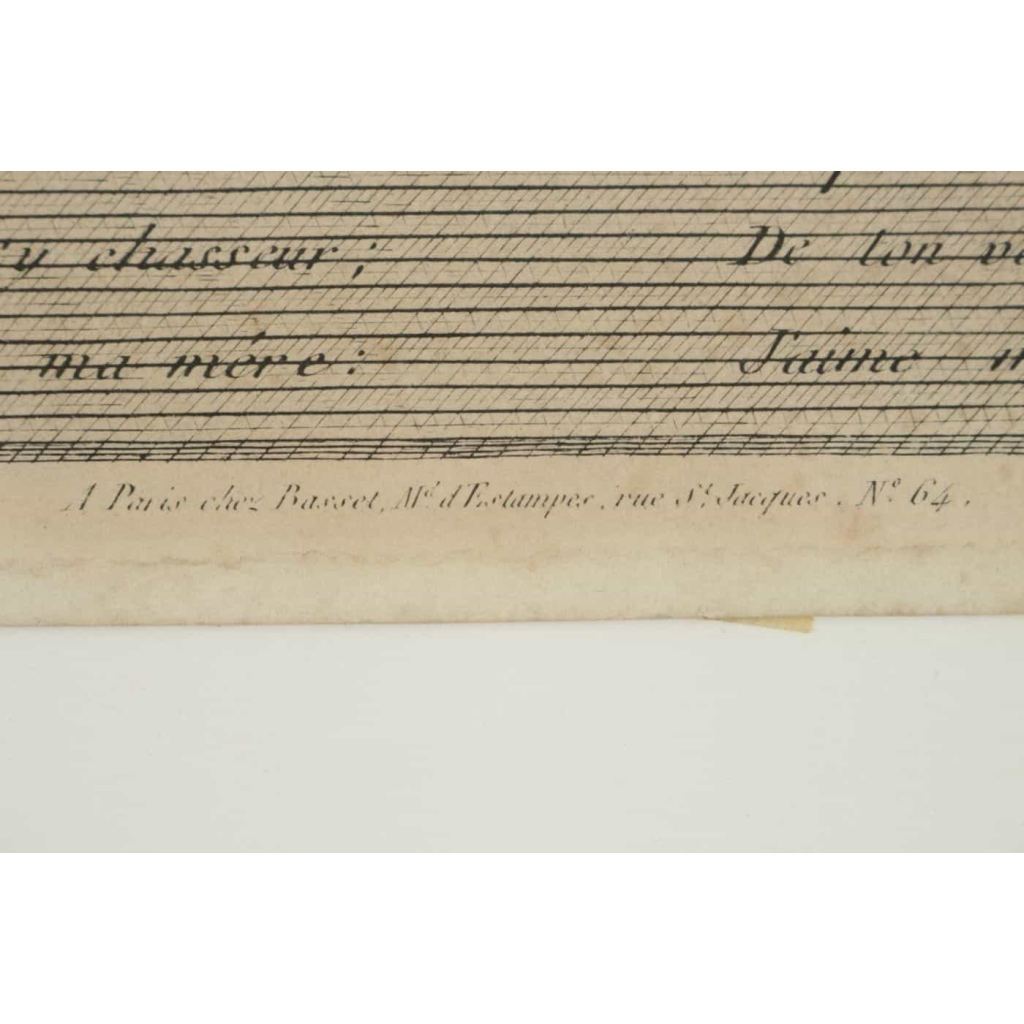 chasseur; De ton
ma mére: J'aime
A Paris chez Basset, Md. d'Estampes, rue St. Jacques. No. 64.